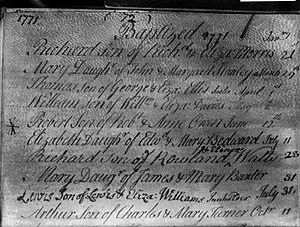 1771. 72
Baptized 1771
Richard Son of Rich.d & Eliza Morris Jan.ry 21
Mary Daug.r of John & Margaret March 19th
Thomas, Son of George & Eliza Ellis April 1st
William Son of Will.m & Eliza Davies May 5
Robert Son of Rob.t & Anne Owen June 17th
Elizabeth Daug.r of Edw.d & Mary Bedward July 11
Richard Son of Rowland Watts 23
Mary Daug.r of James & Mary Baxter 31
Lewis Son of Lewis & Eliza: Williams Innholder July 31
Arthur Son of Charles & Mary Turner Oct.r 11